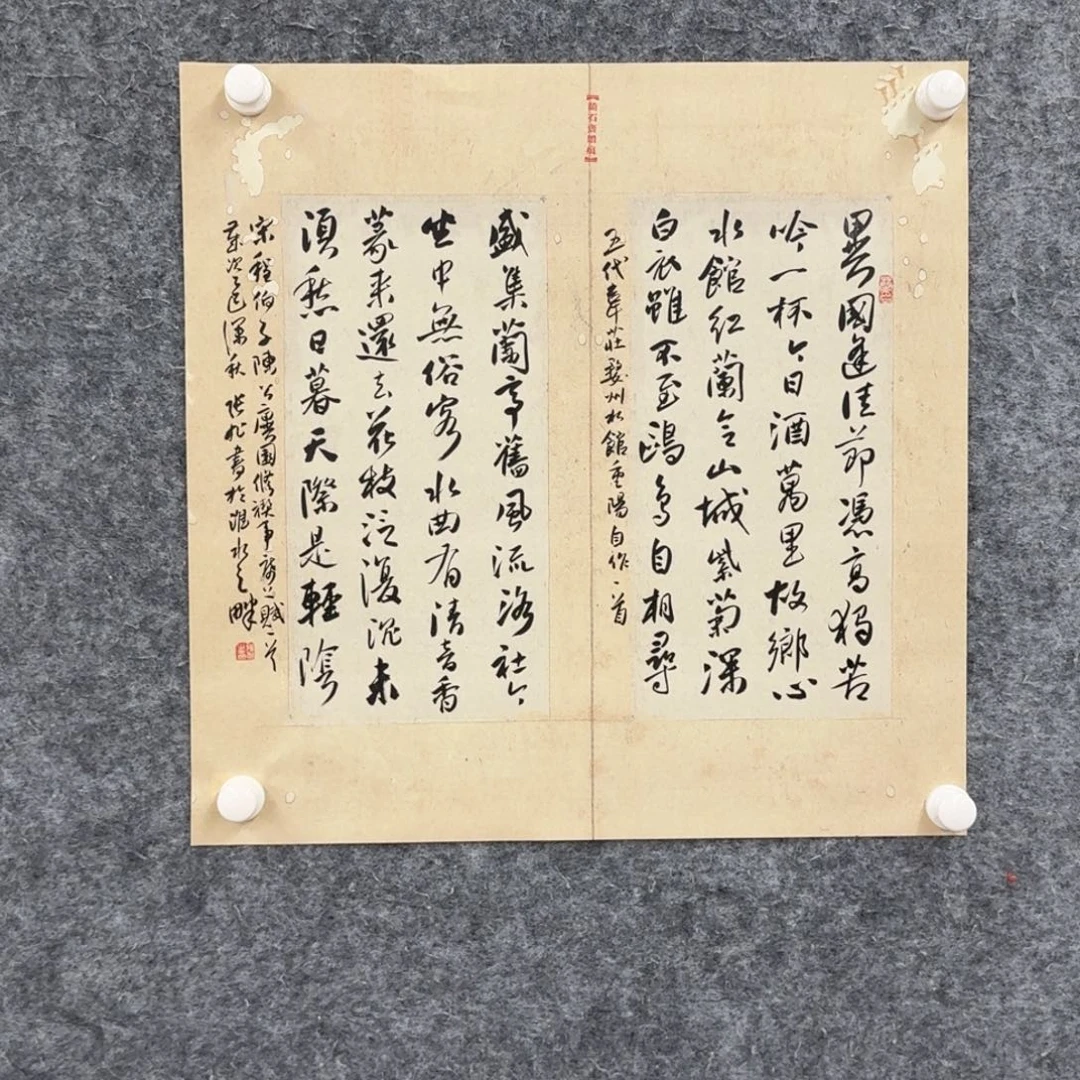 異國逢佳節憑高獨苦
吟一杯今日酒萬里故鄉心
水館紅蘭合山城紫菊深
白衣雖不至鷗鳥自相尋
五代韋莊婺州水館重陽自作一首
盛集蘭亭舊風流洛社今
坐中無俗客水曲有清音香
篆來還去花枝泛復沉未
須愁日暮天際是輕陰
宋程伯子陳公廙園修禊事席上賦一首
歲次乙巳深秋 書於淮水之畔